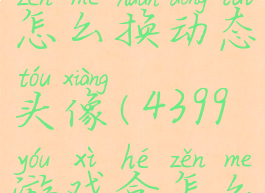 zěn me huàn dòng tài
怎么换动态
tóu xiàng
头像(4399
yóu xì hé zěn me
游戏盒怎么